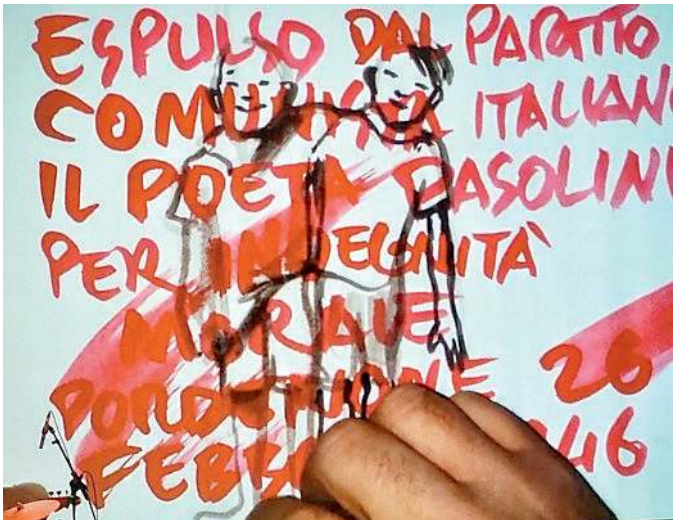 ESPULSO DAL PARTITO
COMUNISTA ITALIANO
IL POETA PASOLINI
PER INDEGNITÀ
MORALE
PORDENONE 26